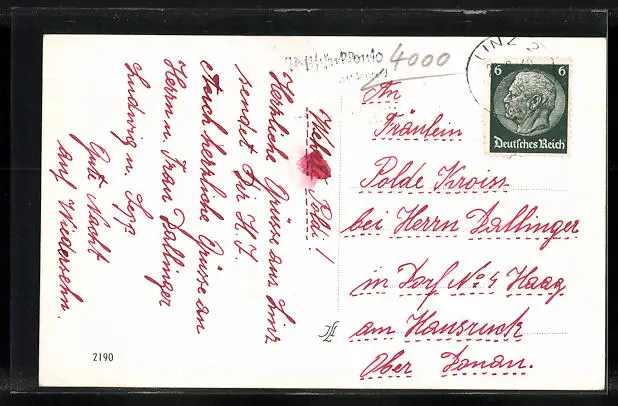 Herzliche Grüsse aus Linz
sendet Dir H. J.
Auch herzliche Grüsse an
Herrn u. Frau Dallinger
Ludwig u. Sepp
Gute Nacht
auf Wiedersehn.
2190
4000
LINZ
6 6
Deutsches Reich
An
Fräulein
Polde Kroiss
bei Herrn Dallinger
in Dorf No 4 Haag
am Hausruck
Ober Donau.